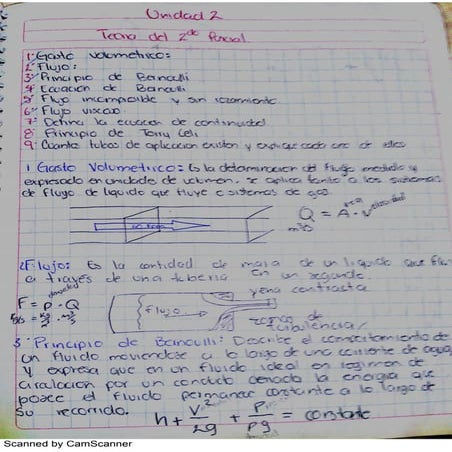 Unidad 2
Teoria del 2do Parcial.
1° Gasto volumetrico:
2° Flujo:
3° Principio de Bernoulli
4° Ecuacion de Bernoulli
5° Flujo incompresible y sin rozamiento
6° Flujo viscoso
7° Defina la ecuacion de continuidad
8° Principio de Torricelli
9° Cuantos tubos de aplicacion existen y explique cada uno de ellos
1 Gasto Volumetrico: Es la determinacion de flujo medido y
expresado en unidade de volumen. se aplica tanto a los sistemas
de flujo de liquido que fluye o sistemas de gas.
Q = A · v
m³/s
2 Flujo: Es la cantidad de masa de un liquido que fluye
a través de una tuberia en un segundo.
vena contracta
F = ρ · Q
flujo
zonas de
turbulencia
3° Principio de Bernoulli: Describe el comportamiento de
un fluido moviendose a lo largo de una corriente de agua
y expresa que en un fluido ideal en regimen de
circulacion por un conducto cerrado la energia que
posee el fluido permanece constante a lo largo de
su recorrido.
h + v²/2g + P/ρg = constante
Scanned by CamScanner